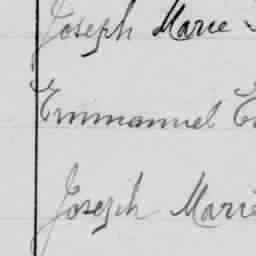 Joseph Marie
Emmanuel
Joseph Marie